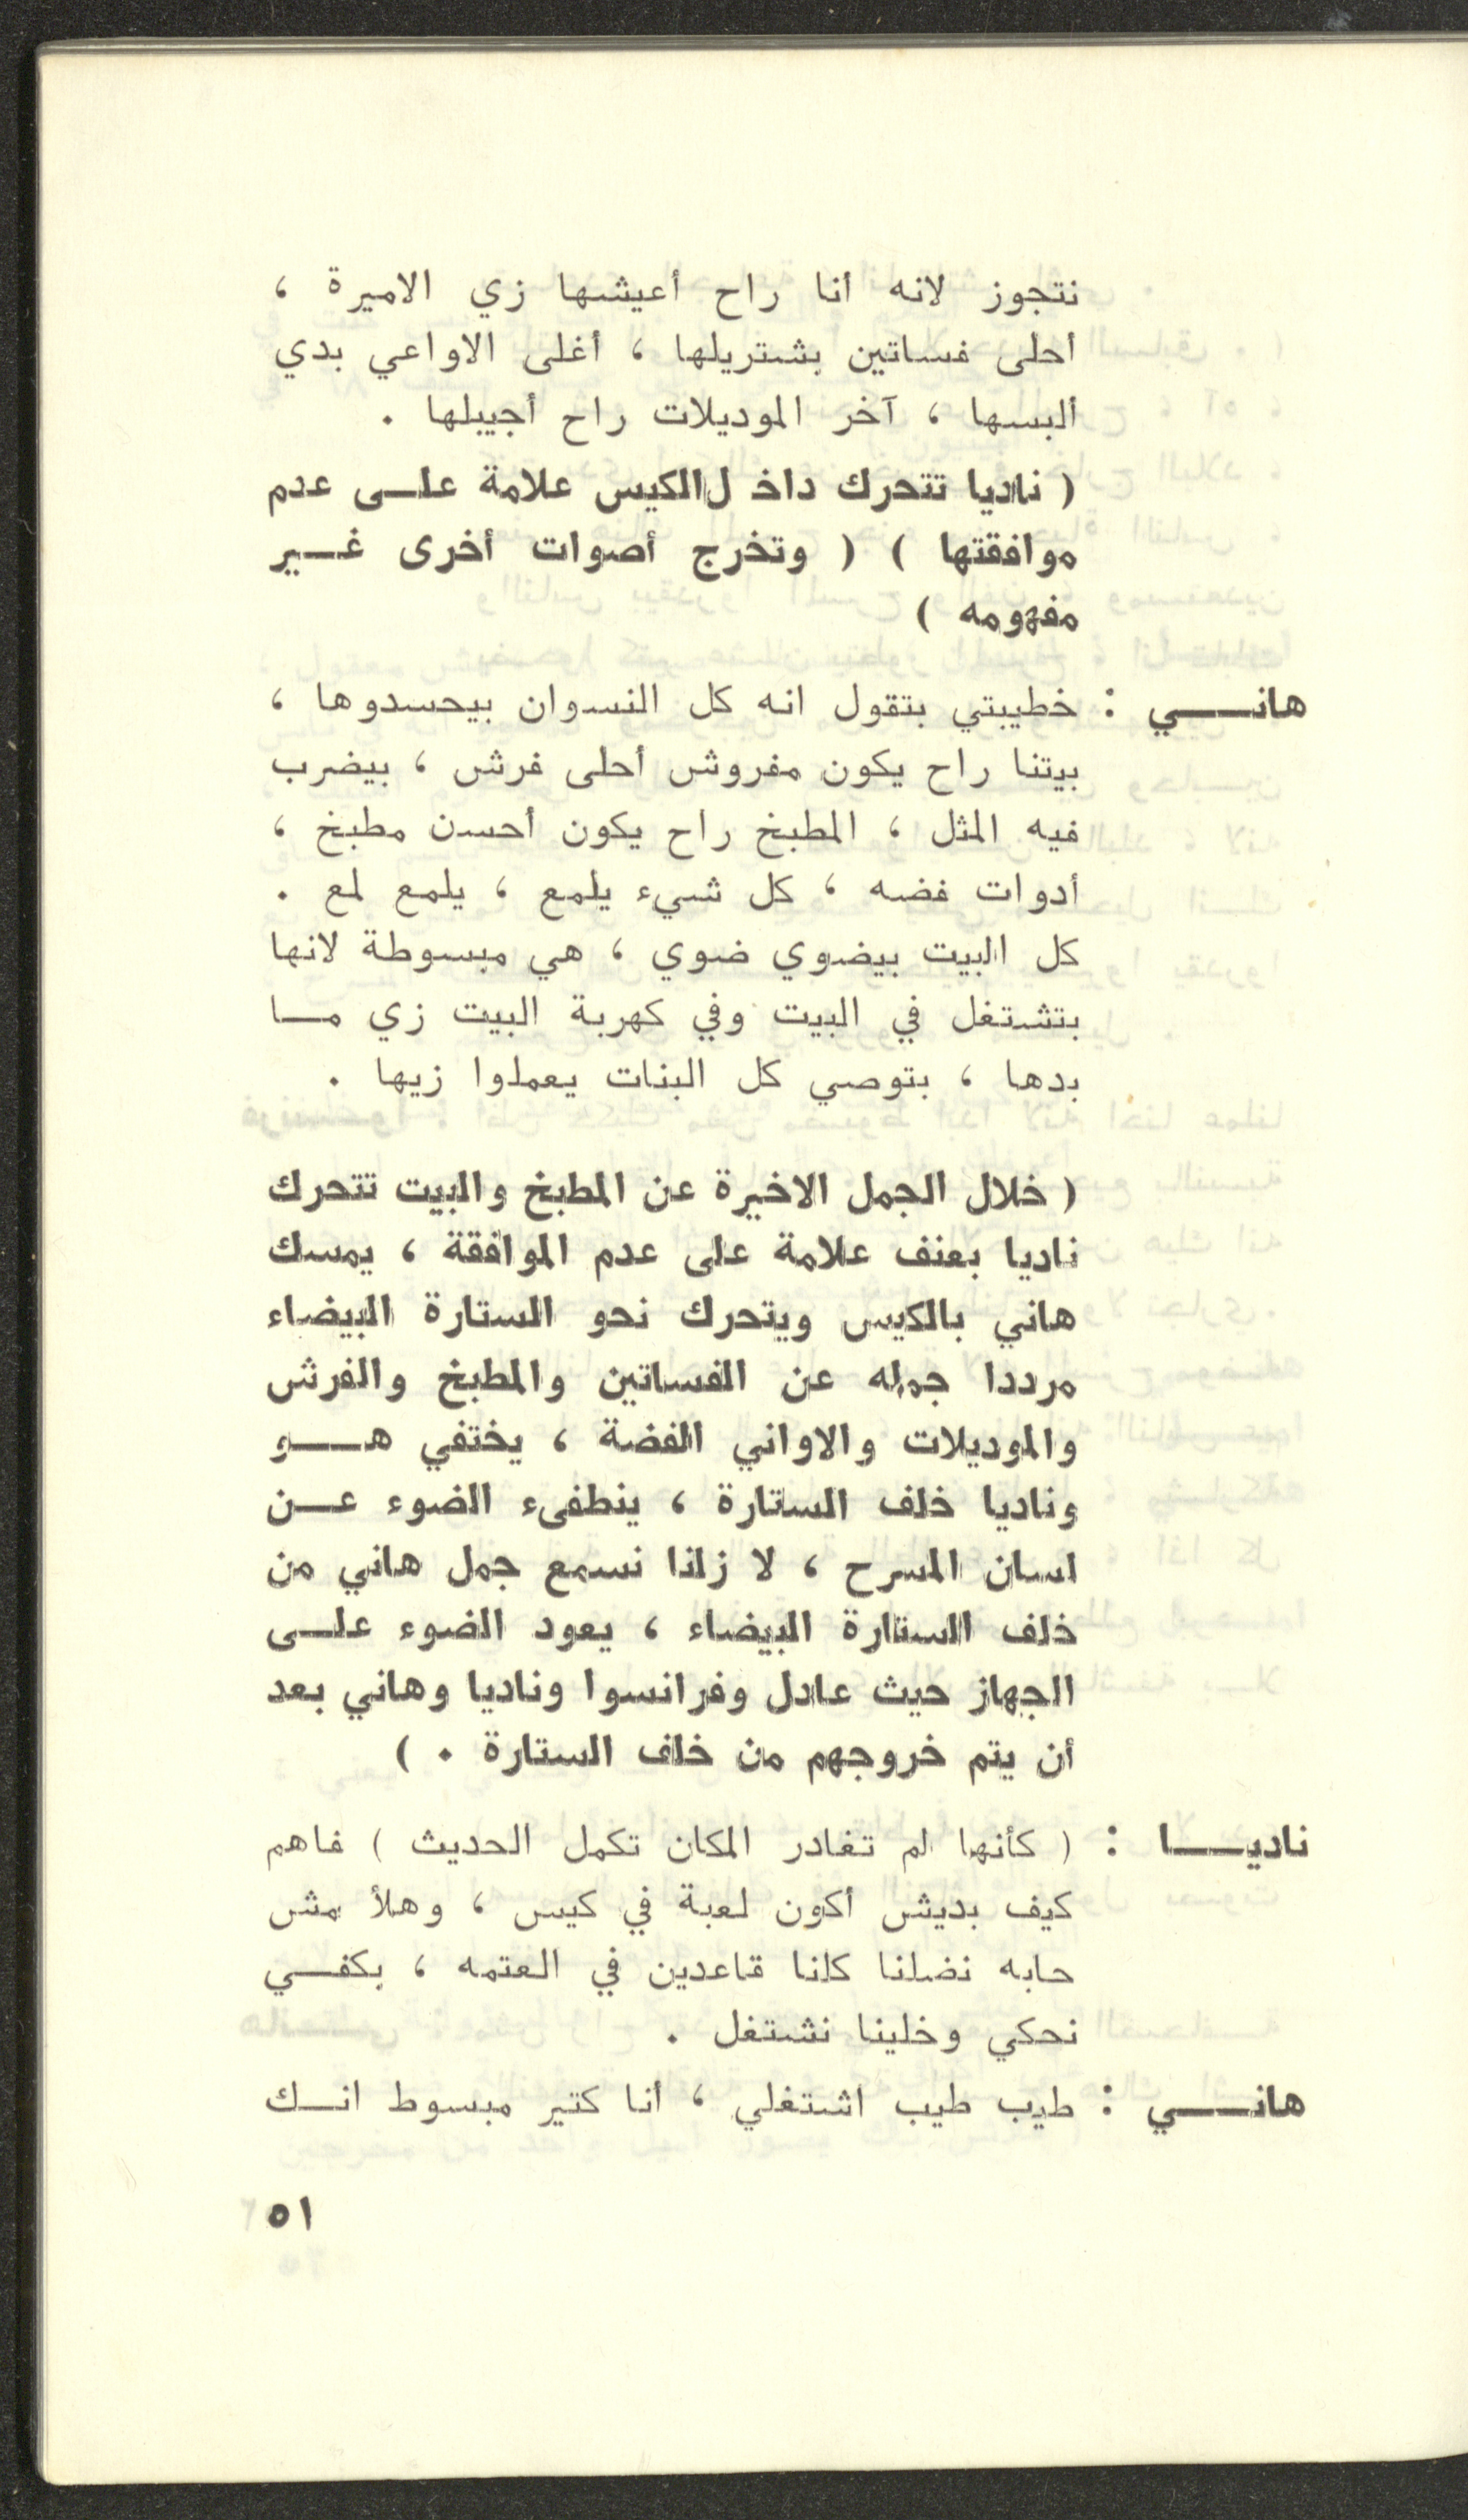 نتجوز لانه أنا راح أعيشها زي الاميرة ،
أحلى فساتين بشتريلها ، أغلى الاواعي بدي
ألبسها ، آخر الموديلات راح أجيبلها .
( ناديا تتحرك داخ لالكيس علامة على عدم
موافقتها ) ( وتخرج أصوات أخرى غير
مفهومه )
هاني : خطيبتي بتقول انه كل النسوان بيحسدوها ،
بيتنا راح يكون مفروش أحلى فرش ، بيضرب
فيه المثل ، المطبخ راح يكون أحسن مطبخ ،
أدوات فضه ، كل شيء يلمع ، يلمع لمع .
كل البيت بيضوي ضوي ، هي مبسوطة لانها
بتشتغل في البيت وفي كهربة البيت زي ما
بدها ، بتوصي كل البنات يعملوا زيها .
( خلال الجمل الاخيرة عن المطبخ والبيت تتحرك
ناديا بعنف علامة على عدم الموافقة ، يمسك
هاني بالكيس ويتحرك نحو الستارة البيضاء
مرددا جمله عن الفساتين والمطبخ والفرش
والموديلات والاواني الفضة ، يختفي هو
وناديا خلف الستارة ، ينطفىء الضوء عن
لسان المسرح ، لا زلنا نسمع جمل هاني من
خلف الستارة البيضاء ، يعود الضوء على
الجهاز حيث عادل وفرانسوا وناديا وهاني بعد
أن يتم خروجهم من خلف الستارة . )
ناديا : ( كأنها لم تغادر المكان تكمل الحديث ) فاهم
كيف بديش أكون لعبة في كيس ، وهلأ مش
حابه نضلنا كلنا قاعدين في العتمه ، بكفي
نحكي وخلينا نشتغل .
هاني : طيب طيب اشتغلي ، أنا كتير مبسوط انك
٥١